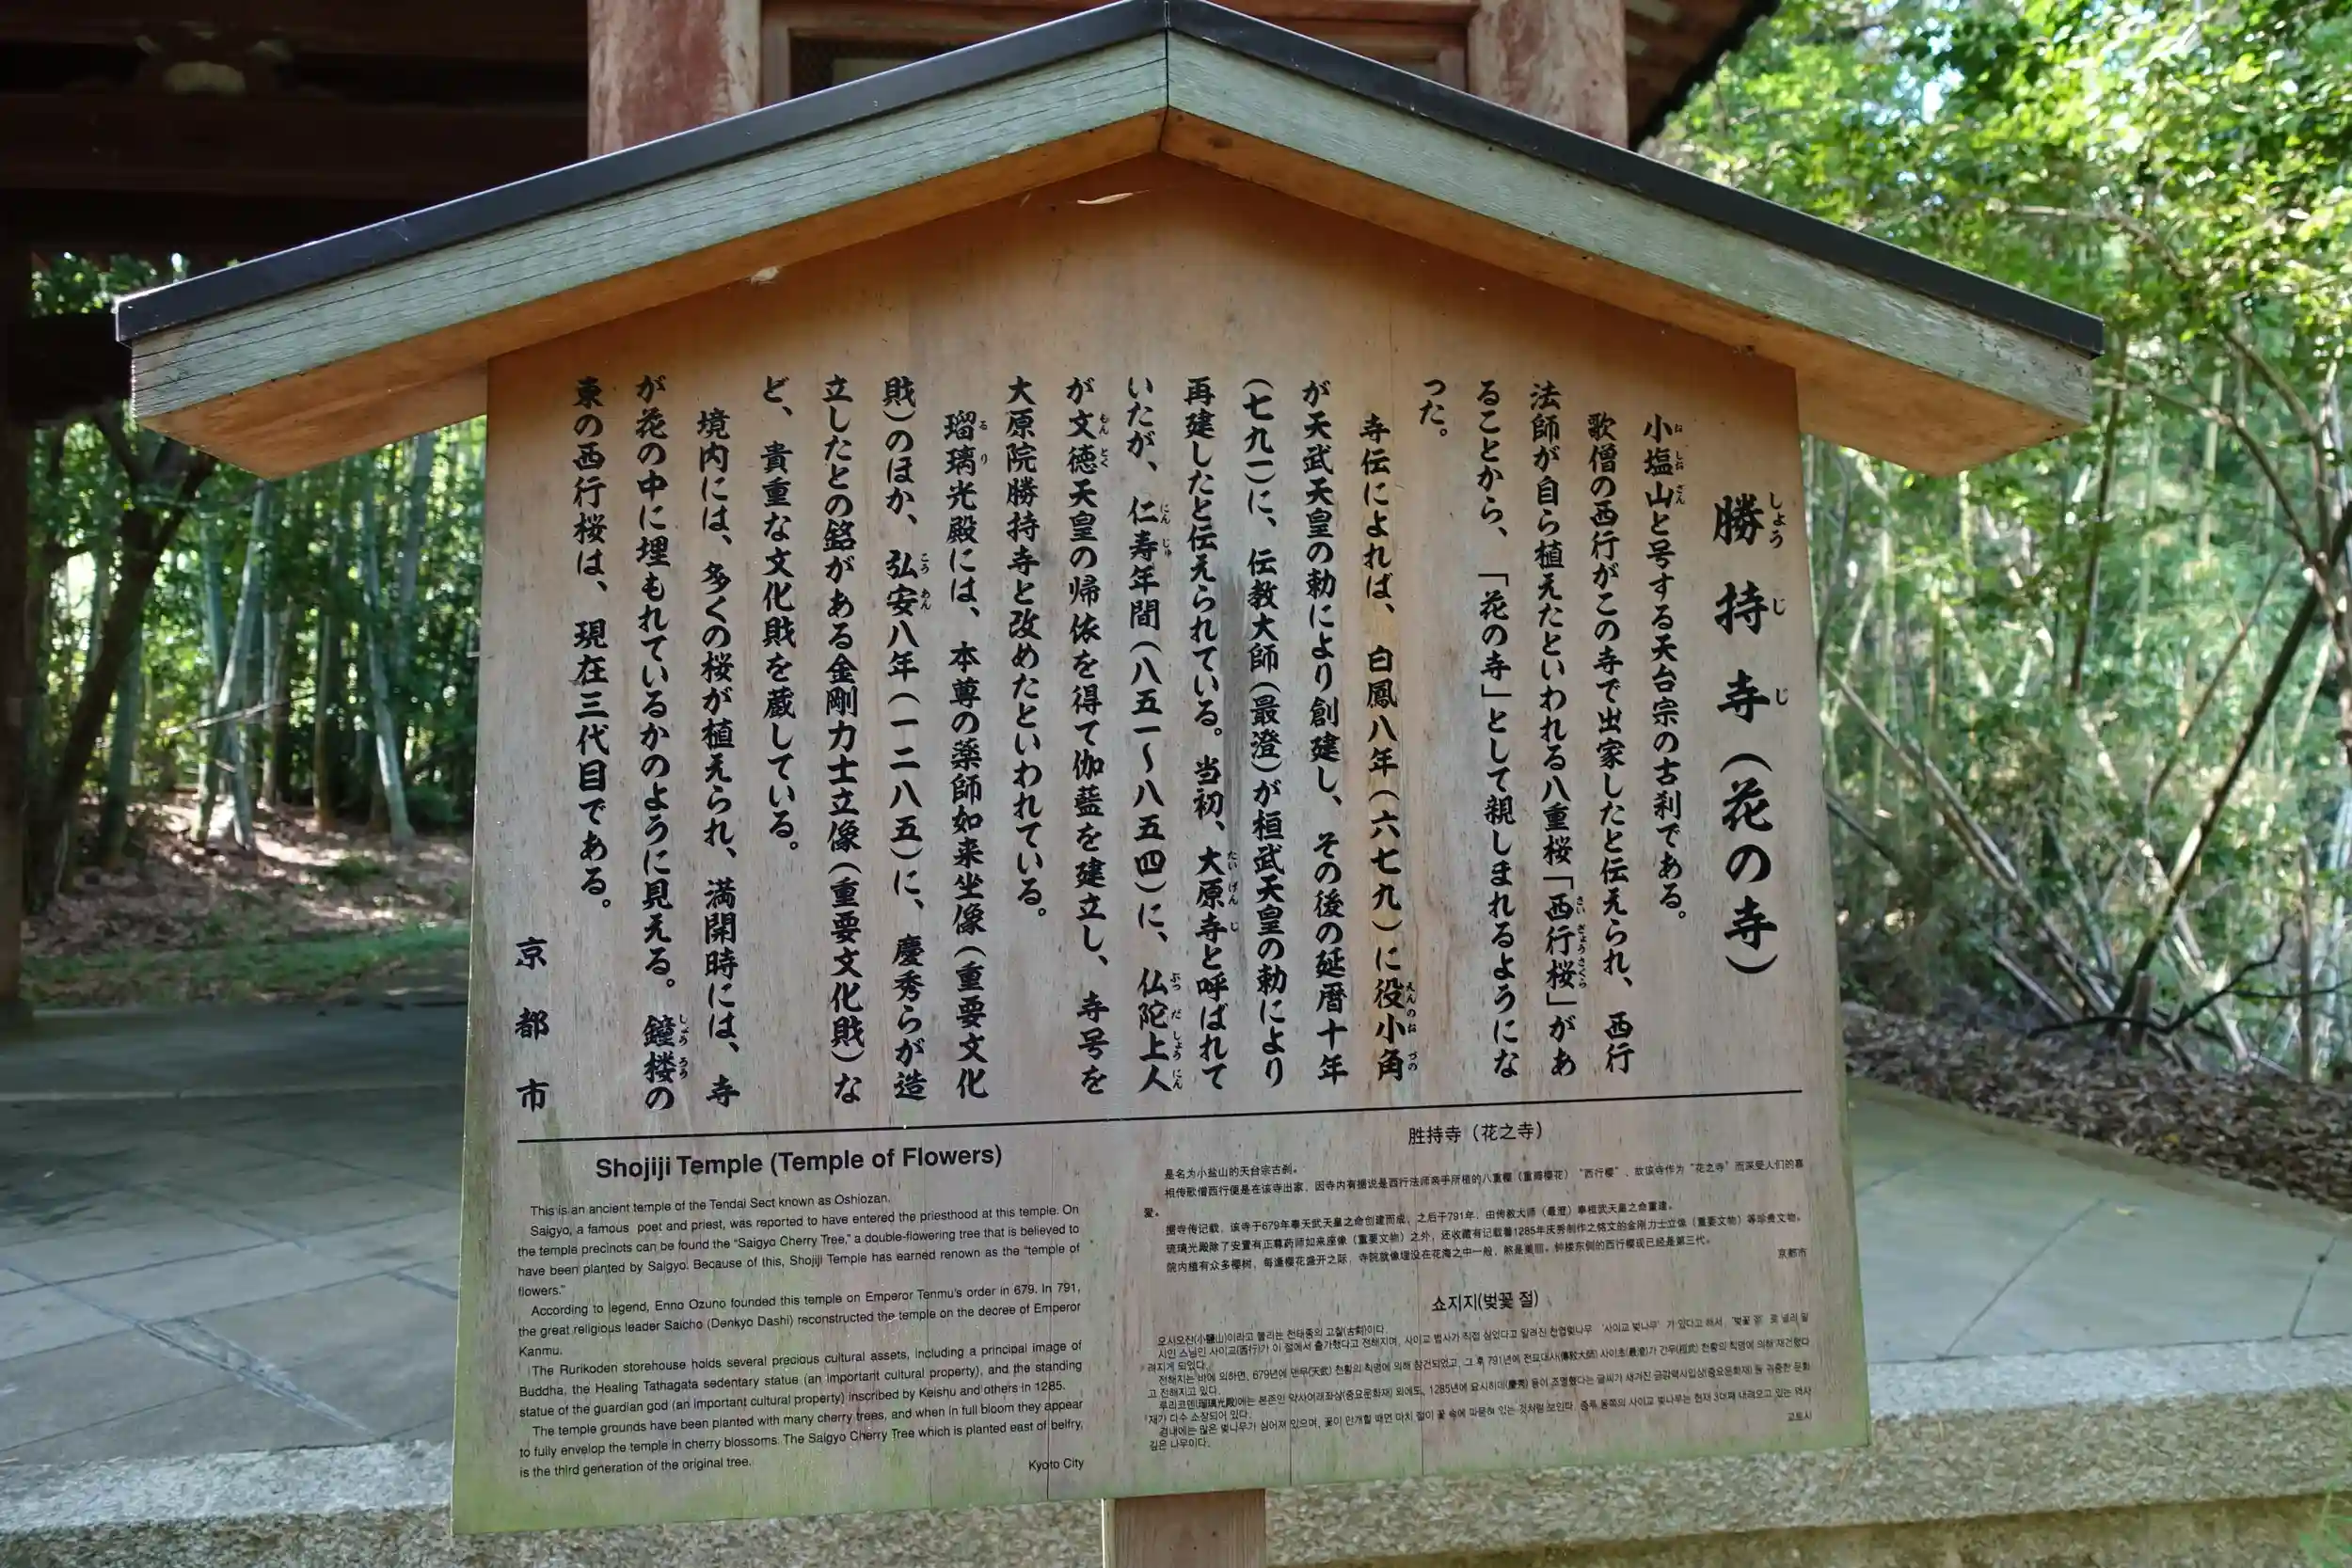 勝持寺（花の寺）
小塩山と号する天台宗の古刹である。
歌僧の西行がこの寺で出家したと伝えられ、西行
法師が自ら植えたといわれる八重桜「西行桜」があ
ることから、「花の寺」として親しまれるようにな
った。
寺伝によれば、白鳳八年（六七九）に役小角
が天武天皇の勅により創建し、その後の延暦十年
（七九一）に、伝教大師（最澄）が桓武天皇の勅により
再建したと伝えられている。当初、大原寺と呼ばれて
いたが、仁寿年間（八五一〜八五四）に、仏陀上人
が文徳天皇の帰依を得て伽藍を建立し、寺号を
大原院勝持寺と改めたといわれている。
瑠璃光殿には、本尊の薬師如来坐像（重要文化
財）のほか、弘安八年（一二八五）に、慶秀らが造
立したとの銘がある金剛力士立像（重要文化財）な
ど、貴重な文化財を蔵している。
境内には、多くの桜が植えられ、満開時には、寺
が花の中に埋もれているかのように見える。鐘楼の
東の西行桜は、現在三代目である。
京都市
Shojiji Temple (Temple of Flowers)
This is an ancient temple of the Tendai Sect known as Oshiozan.
Saigyo, a famous poet and priest, was reported to have entered the priesthood at this temple. On
the temple precincts can be found the “Saigyo Cherry Tree,” a double-flowering tree that is believed to
have been planted by Saigyo. Because of this, Shojiji Temple has earned renown as the “temple of
flowers.”
According to legend, Enno Ozuno founded this temple on Emperor Tenmu's order in 679. In 791,
the great religious leader Saicho (Denkyo Dashi) reconstructed the temple on the decree of Emperor
Kanmu.
The Rurikoden storehouse holds several precious cultural assets, including a principal image of
Buddha, the Healing Tathagata sedentary statue (an important cultural property), and the standing
statue of the guardian god (an important cultural property) inscribed by Keishu and others in 1285.
The temple grounds have been planted with many cherry trees, and when in full bloom they appear
to fully envelop the temple in cherry blossoms. The Saigyo Cherry Tree which is planted east of belfry,
is the third generation of the original tree.
Kyoto City
胜持寺（花之寺）
是名为小盐山的天台宗古刹。
相传歌僧西行便是在该寺出家，因寺内有据说是西行法师亲手所植的八重樱（重瓣樱花）“西行樱”，故该寺作为“花之寺”而深受人们的喜
爱。
据寺传记载，该寺于679年奉天武天皇之命创建而成，之后于791年，由传教大师（最澄）奉桓武天皇之命重建。
琉璃光殿除了安置有正尊药师如来座像（重要文物）之外，还收藏有记载着1285年庆秀制作之铭文的金刚力士立像（重要文物）等珍贵文物。
院内植有众多樱树，每逢樱花盛开之际，寺院就像埋没在花海之中一般，煞是美丽。钟楼东侧的西行樱现已经是第三代。
京都市
쇼지지(벚꽃 절)
오시오잔(小鹽山)이라고 불리는 천태종의 고찰(古刹)이다.
시인 스님인 사이교(西行)가 이 절에서 출가했다고 전해지며, 사이교 법사가 직접 심었다고 알려진 천엽벚나무 ‘사이교 벚나무’가 있다고 해서, ‘벚꽃 절’로 널리 알
려지게 되었다.
전해지는 바에 의하면, 679년에 덴무(天武) 천황의 칙명에 의해 창건되었고, 그 후 791년에 전교대사(傳敎大師) 사이초(最澄)가 간무(桓武) 천황의 칙명에 의해 재건했다
고 전해지고 있다.
루리코덴(瑠璃光殿)에는 본존인 약사여래좌상(중요문화재) 외에도, 1285년에 요시히데(慶秀) 등이 조영했다는 글씨가 새겨진 금강력사입상(중요문화재) 등 귀중한 문화
재가 다수 소장되어 있다.
경내에는 많은 벚나무가 심어져 있으며, 꽃이 만개할 때면 마치 절이 꽃 속에 파묻혀 있는 것처럼 보인다. 종루 동쪽의 사이교 벚나무는 현재 3대째 내려오고 있는 역사
깊은 나무이다.
교토시